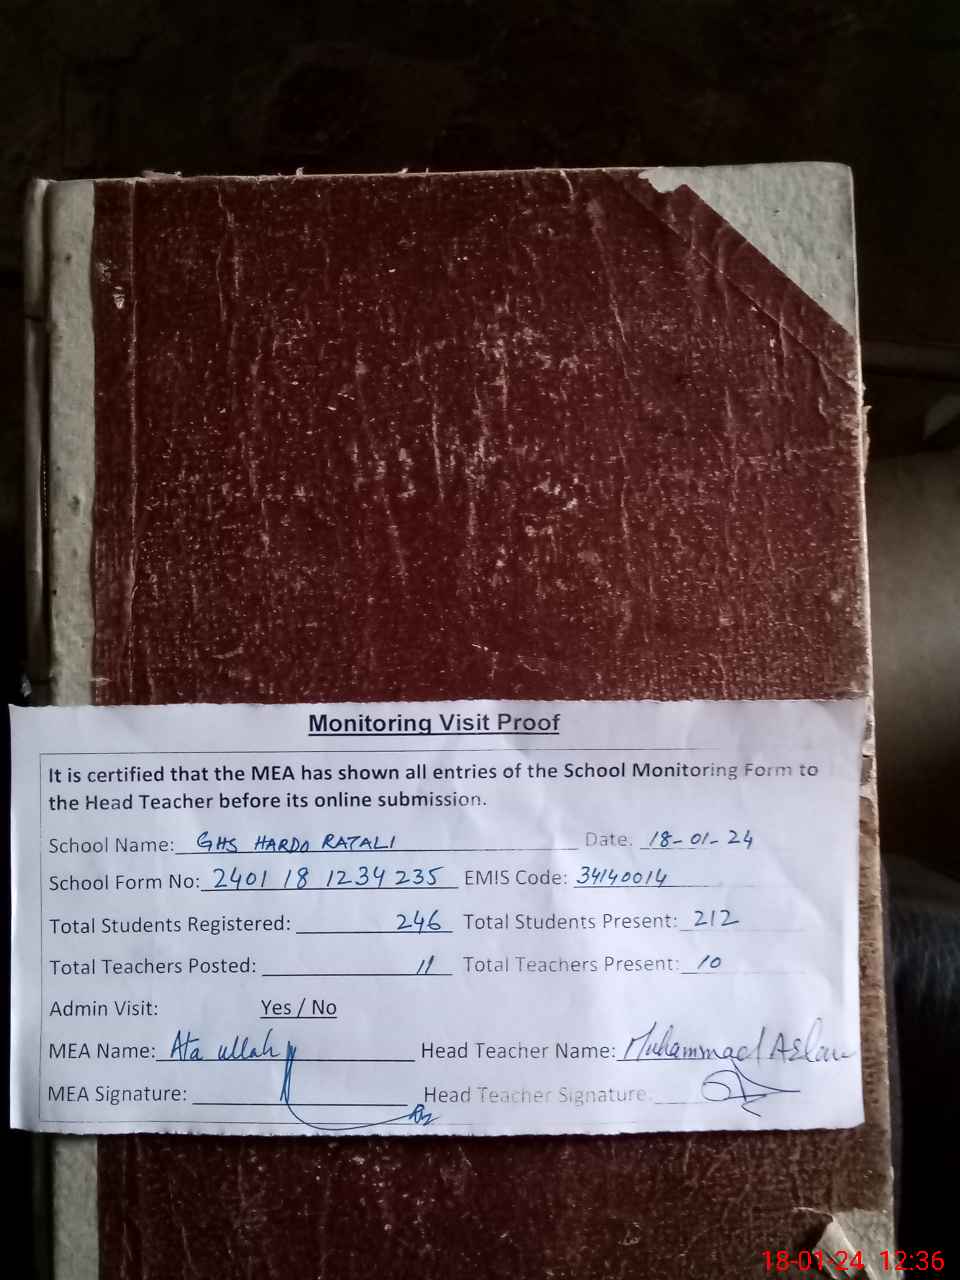 Monitoring Visit Proof
It is certified that the MEA has shown all entries of the School Monitoring Form to
the Head Teacher before its online submission.
School Name: GHS HARDO RATALI Date: 18-01-24
School Form No: 2401 18 1234 235 EMIS Code: 34140014
Total Students Registered: 246 Total Students Present: 212
Total Teachers Posted: 11 Total Teachers Present: 10
Admin Visit: Yes / No
MEA Name: Ata ullah Head Teacher Name: Muhammad Aslam
MEA Signature: Head Teacher Signature:
18-01-24 12:36